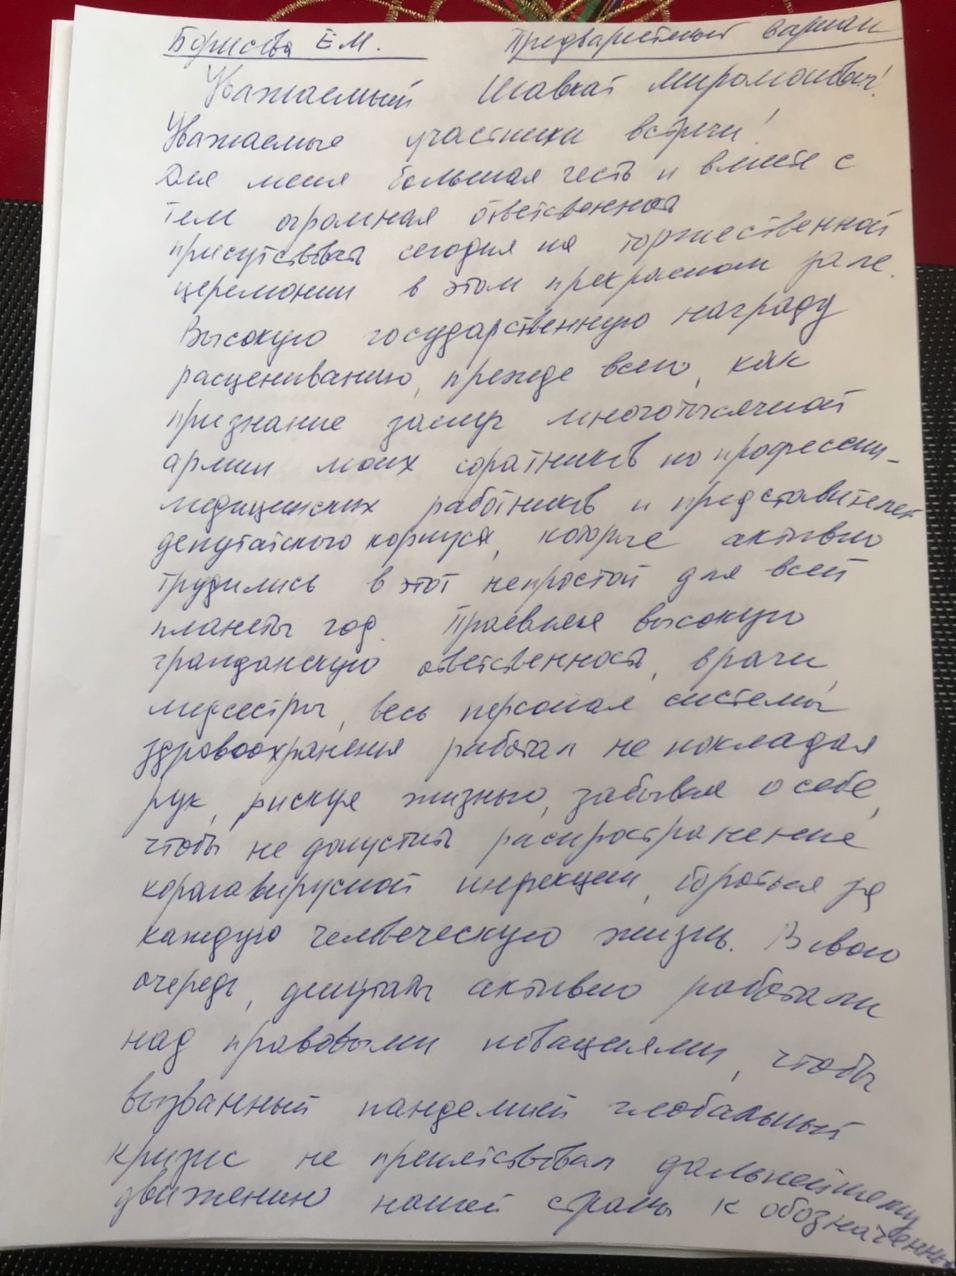 Борисова Е.М. Предварительный вариант
Уважаемый Шавкат Миромонович!
Уважаемые участники встречи!
Для меня большая честь и вместе с
тем огромная ответственность
присутствовать сегодня на торжественной
церемонии в этом прекрасном зале.
Высокую государственную награду
расцениваю, прежде всего, как
признание заслуг многотысячной
армии моих соратников по профессии -
медицинских работников и представителей
депутатского корпуса, которые активно
трудились в этот непростой для всей
планеты год. Проявляя высокую
гражданскую ответственность, врачи,
медсестры, весь персонал системы
здравоохранения работал не покладая
рук, рискуя жизнью, забывая о себе,
чтобы не допустить распространение
коронавирусной инфекции, бороться за
каждую человеческую жизнь. В свою
очередь, депутаты активно работали
над правовыми новациями, чтобы
вызванный пандемией глобальный
кризис не препятствовал дальнейшему
движению нашей страны к обозначенным